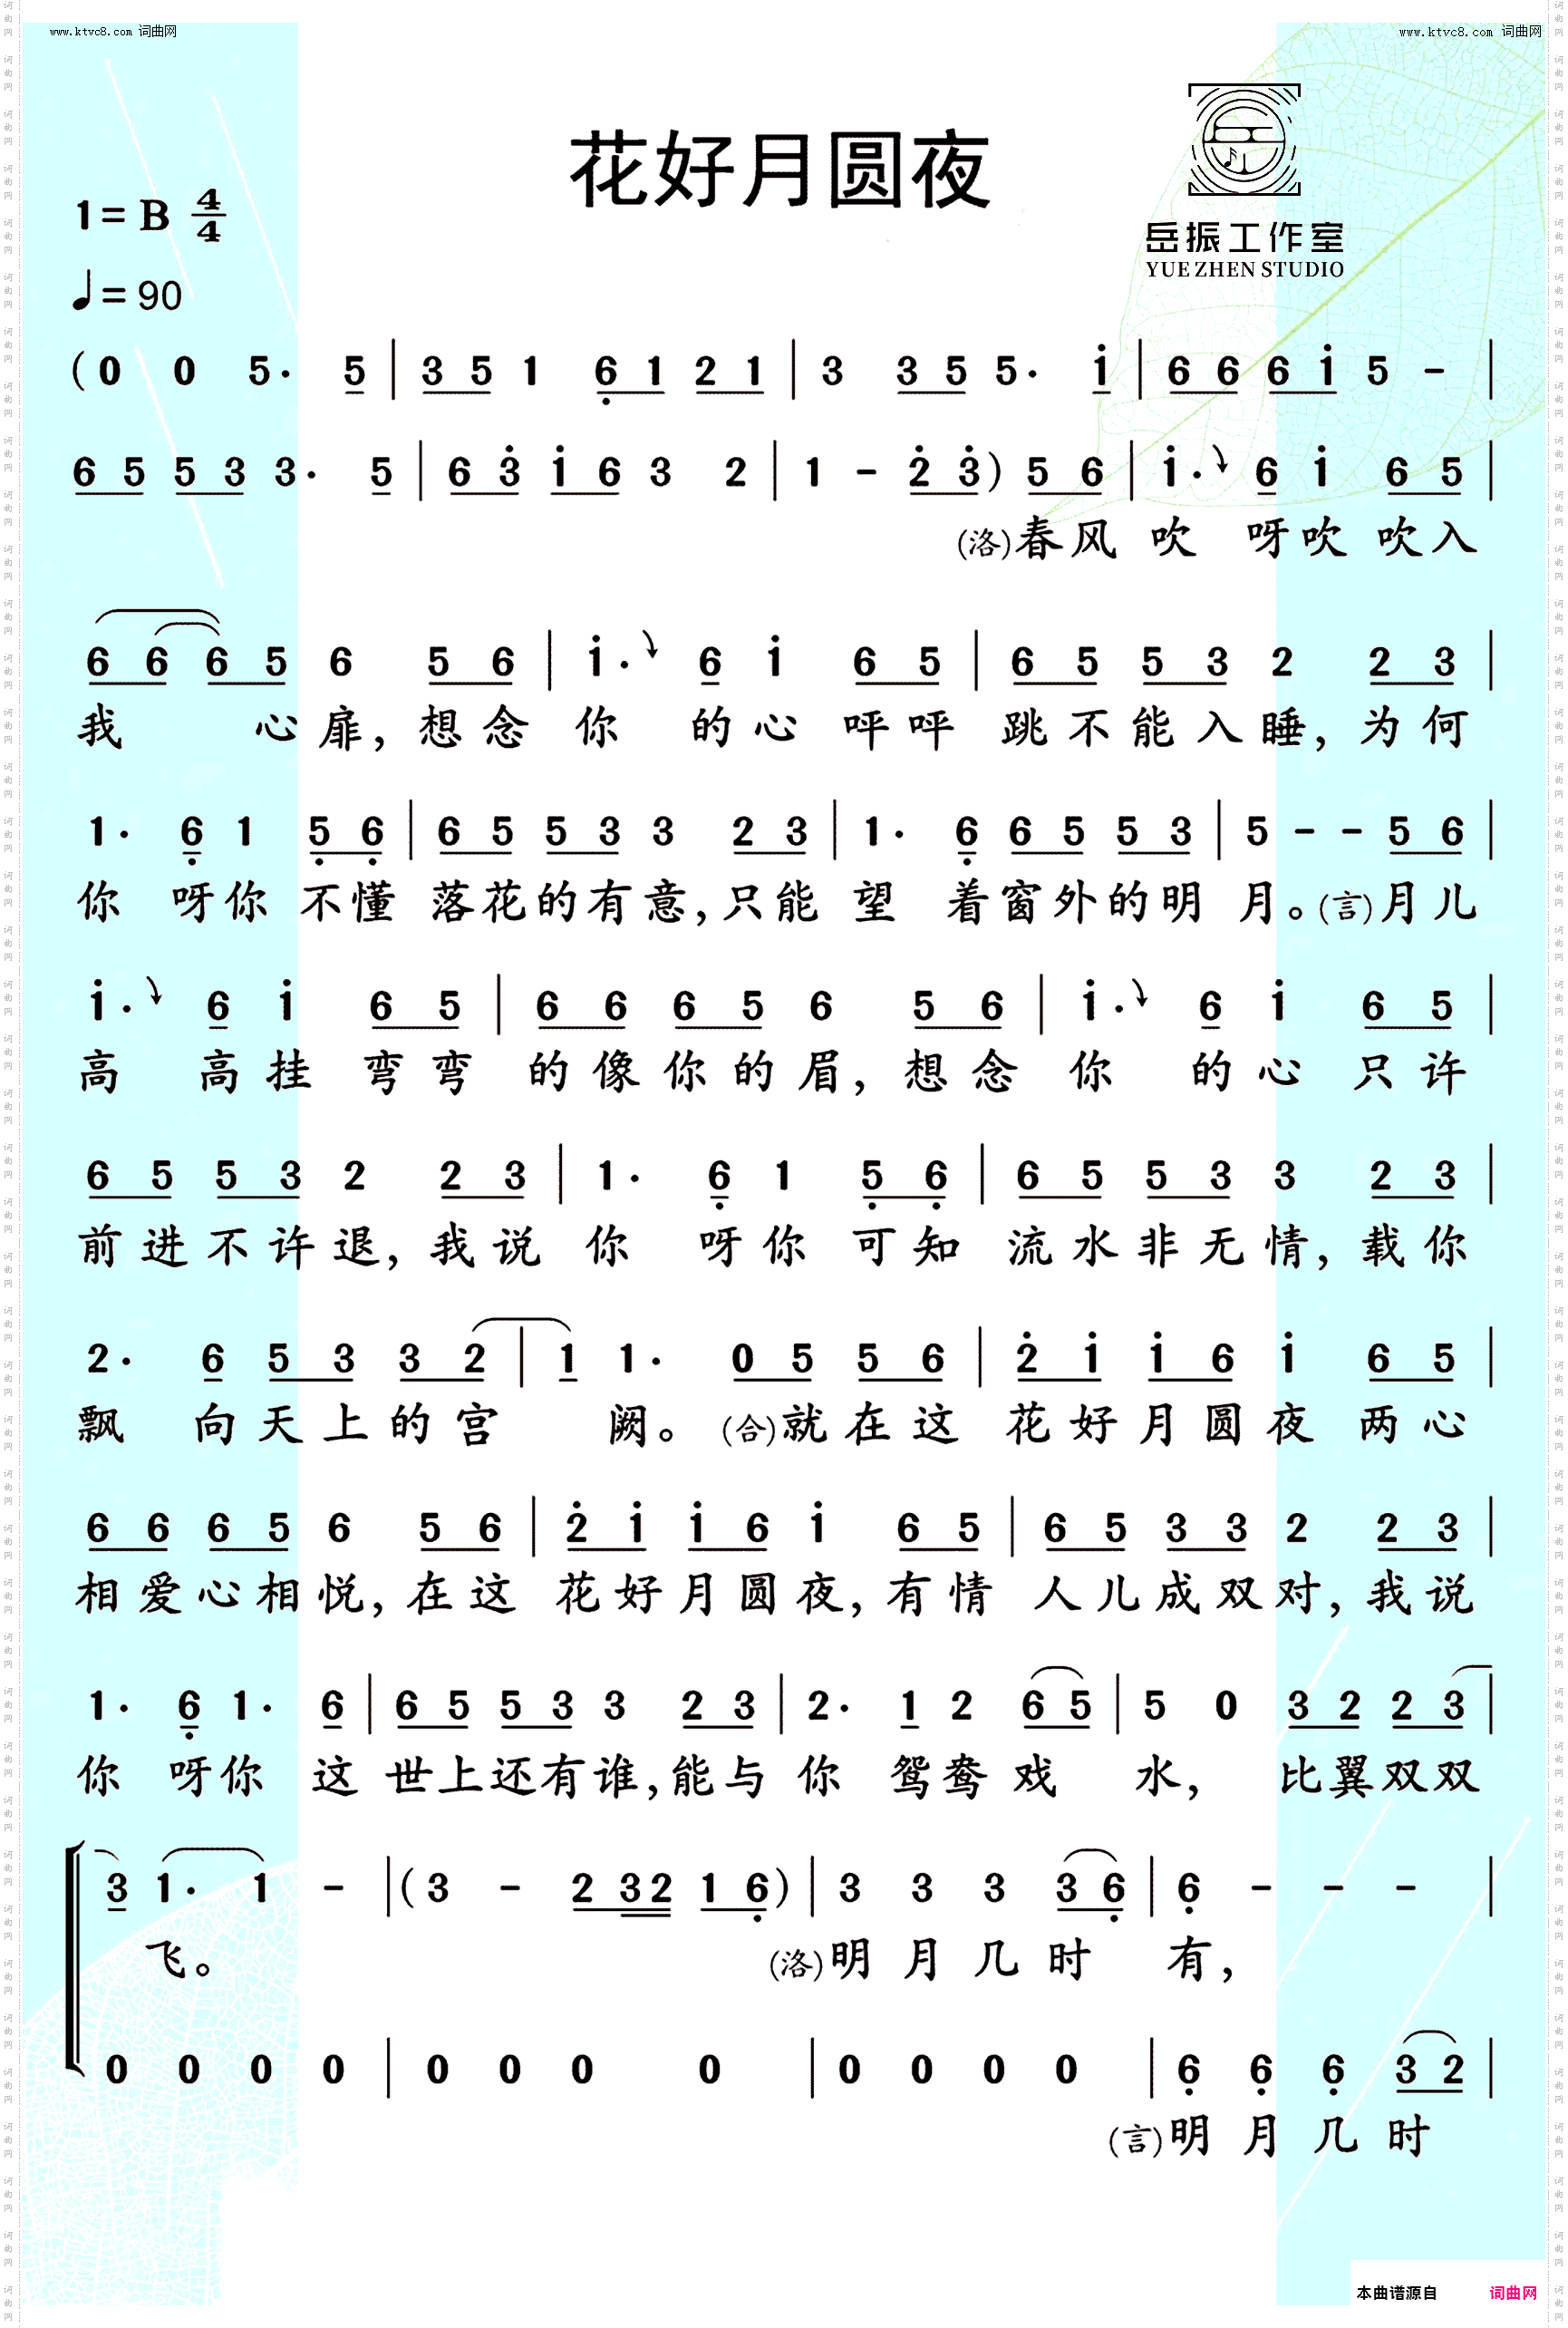 www.ktvc8.com 词曲网
www.ktvc8.com 词曲网
花好月圆夜
岳振工作室
YUE ZHEN STUDIO
1=B 4/4
♩=90
(0 0 5. 5 | 3 5 1 6̣ 1 2 1 | 3 3 5 5. i | 6 6 6 i 5 - |
6 5 5 3 3. 5 | 6 3̇ i 6 3 2 | 1 - 2̇ 3̇) 5 6 | i. 6 i 6 5 |
(洛)春风 吹 呀吹 吹入
6 6 6 5 6 5 6 | i. 6 i 6 5 | 6 5 5 3 2 2 3 |
我 心扉，想念 你 的心 呯呯 跳不能入睡，为何
1. 6̣ 1 5̣ 6̣ | 6 5 5 3 3 2 3 | 1. 6̣ 6 5 5 3 | 5 - - 5 6 |
你 呀你 不懂 落花的有意，只能 望 着窗外的明 月。(言)月儿
i. 6 i 6 5 | 6 6 6 5 6 5 6 | i. 6 i 6 5 |
高 高挂 弯弯 的像你的眉，想念 你 的心 只许
6 5 5 3 2 2 3 | 1. 6̣ 1 5̣ 6̣ | 6 5 5 3 3 2 3 |
前进不许退，我说 你 呀你 可知 流水非无情，载你
2. 6 5 3 3 2 | 1 1. 0 5 5 6 | 2̇ i i 6 i 6 5 |
飘 向天上的宫 阙。(合)就在这 花好月圆夜 两心
6 6 6 5 6 5 6 | 2̇ i i 6 i 6 5 | 6 5 3 3 2 2 3 |
相爱心相悦，在这 花好月圆夜，有情 人儿成双对，我说
1. 6̣ 1. 6 | 6 5 5 3 3 2 3 | 2. 1 2 6 5 | 5 0 3 2 2 3 |
你 呀你 这 世上还有谁，能与 你 鸳鸯戏 水， 比翼双双
3 1. 1 - | (3 - 2 3 2 1 6̣) | 3 3 3 3 6̣ | 6̣ - - - |
飞。 (洛)明 月 几 时 有，
0 0 0 0 | 0 0 0 0 | 0 0 0 0 | 6̣ 6̣ 6̣ 3 2 |
(言)明 月 几 时
本曲谱源自 词曲网